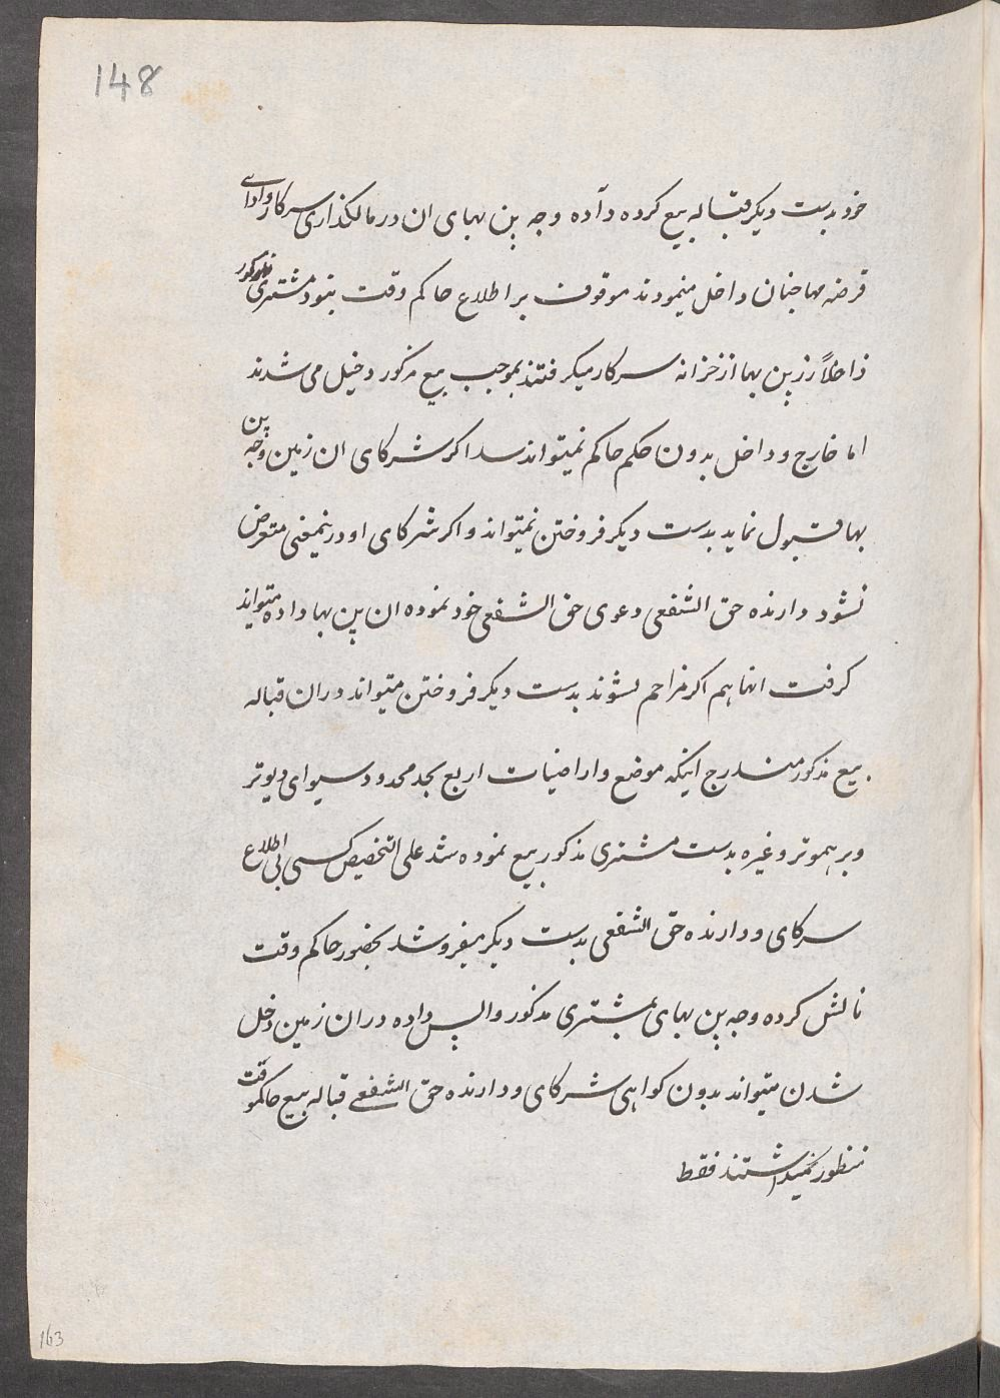 148
خود بدست دیکر قباله بیع کرده داده وجه پن بهای ان در مالکذاری سرکار و ادای
قرضه مهاجنان داخل مینمودند موقوف بر اطلاع حاکم وقت نبود مشتری مذکور
داخلاً رزپن بها از خزانه سرکار میکرفتند بموجب بیع مذکور دخیل می شدند
اما خارج و داخل بدون حکم حاکم نمیتواند سد اکر شرکای ان زمین وجه پن
بها قبول نماید بدست دیکر فروختن نمیتواند و اکر شرکای او درینمعنی متعرض
نشود دارنده حق الشفعی دعوی حق الشفعی خود نموده ان پن بها داده متیواند
کرفت انها هم اکر مزاحم نشوند بدست دیکر فروختن متیواند دران قباله
بیع مذکور مندرج اینکه موضع و اراضیات اربع بحد محدود سیوای دیوتر
و برهموتر وغیره بدست مشتری مذکور بیع نموده شد علی التخصیص کسی بی اطلاع
سرکای و دارنده حق الشفعی بدست دیکر میفروشد بحضور حاکم وقت
نالش کرده وجه پن بهای بمشتری مذکور واپس داده دران زمین دخل
شدن متیواند بدون کواهی شرکای و دارنده حق الشفعے قباله بیع حاکموقت
منظور نمیداشتند فقط
163